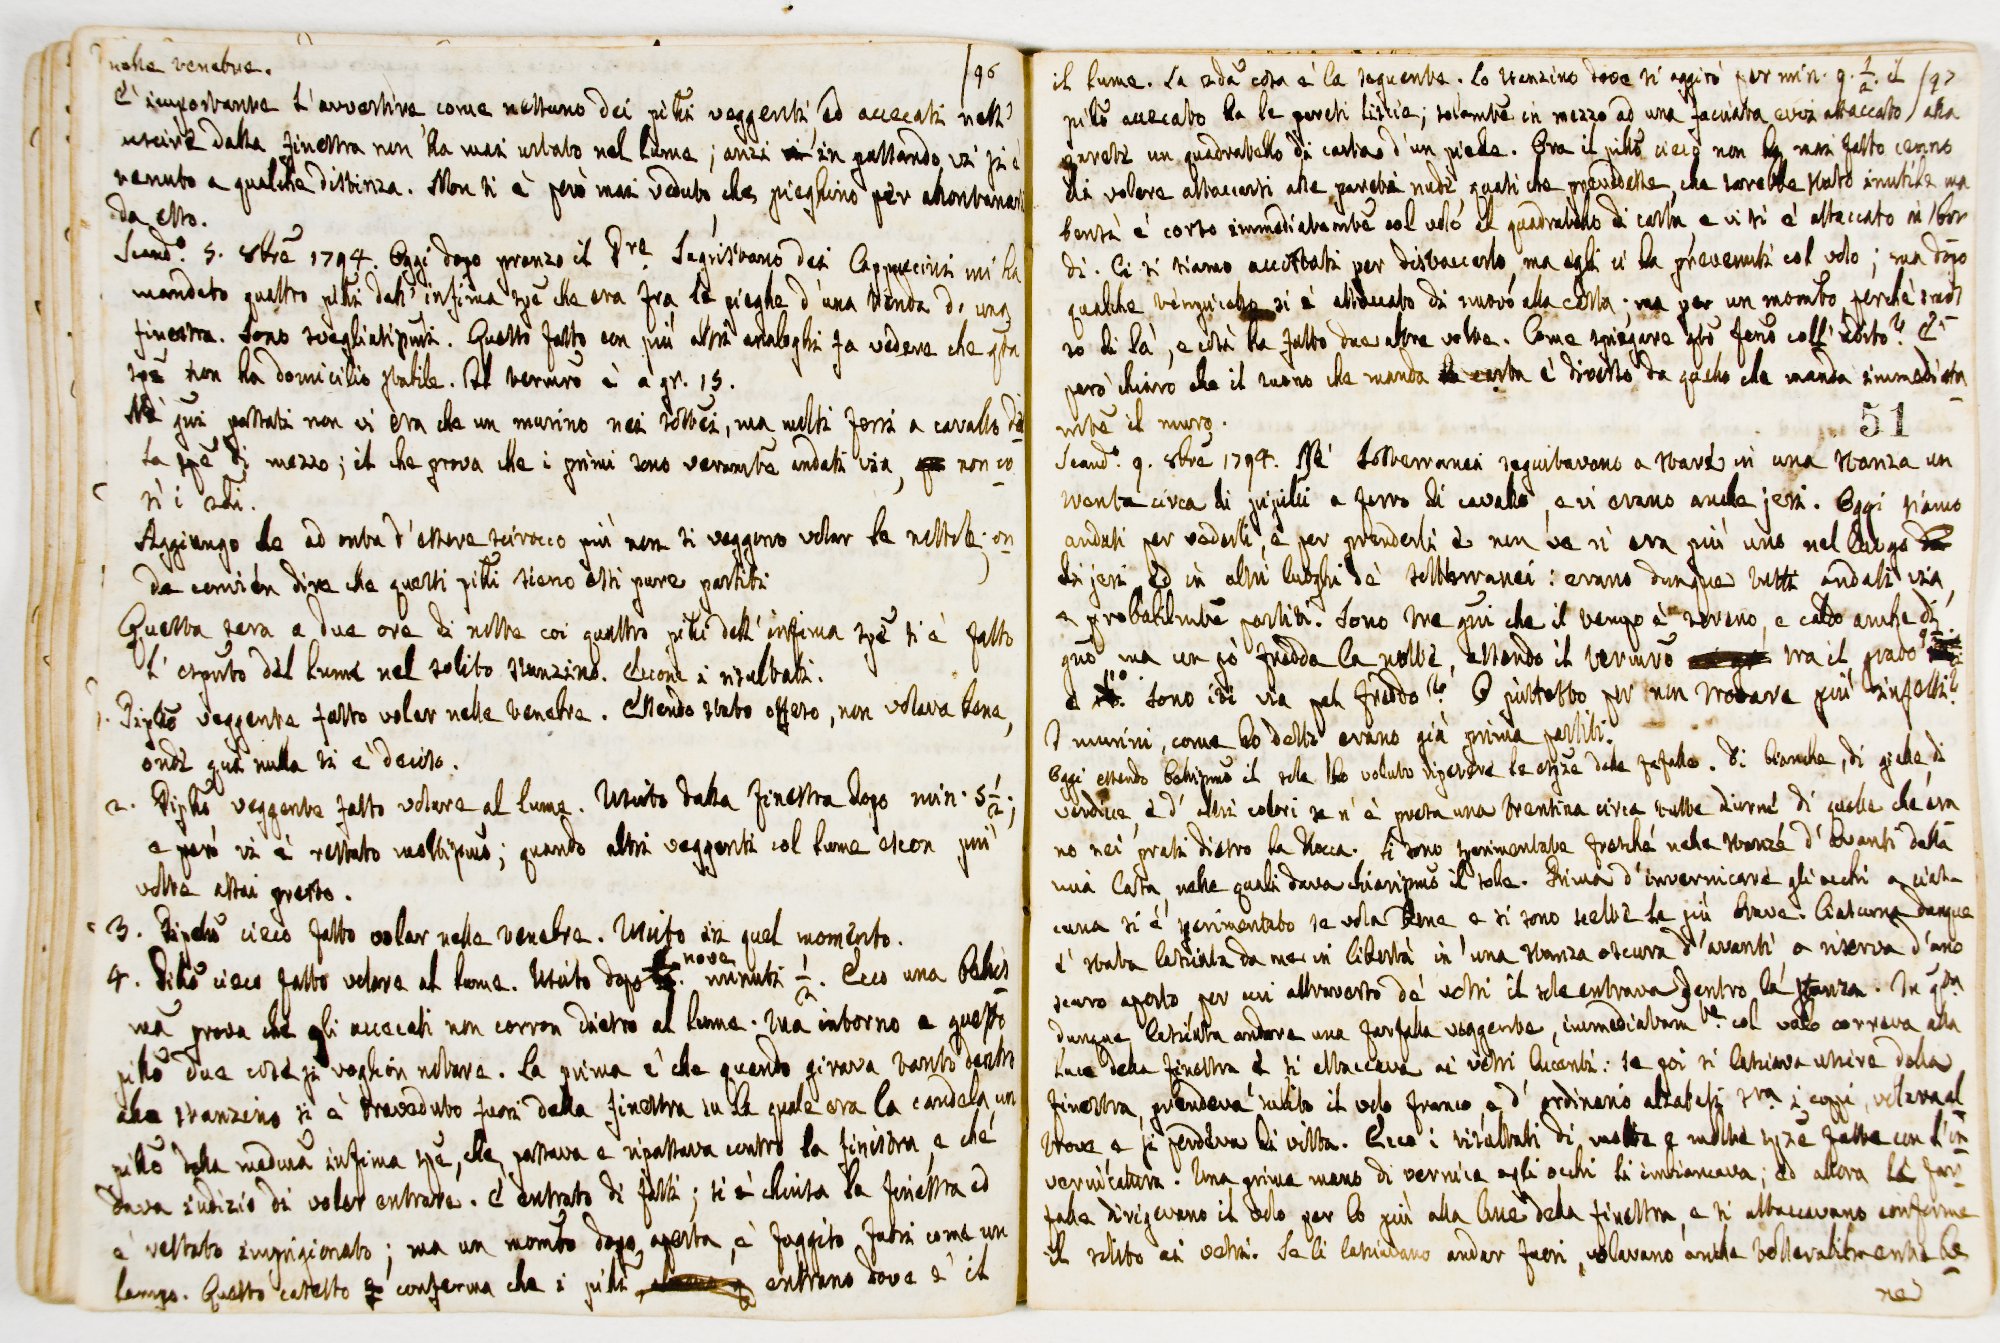 nelle tenebre. 196
È importante l'avvertire come nessuno dei plli veggenti ed accecati nell'
uscire dalla finestra non ha mai urtato nel lume; anzi in passando vi si è
tenuto a qualche distanza. Non si è però mai veduto che pieghino per allontanarsi
da esso.
Scand.º 5. 8bre 1794. Oggi dopo pranzo il Pre Sagristano dei Cappuccini mi ha
mandato quattro plli dell'infima spe che era fra le pieghe d'una tenda di una
finestra. Sono svegliatissimi. Questo fatto con più altri analoghi fa vedere che qta
spe non ha domicilio stabile. Il termro è a gr. 15.
Ne' gni passati non vi era che un murino nei sottei, ma molti ferri a cavallo del
la spe di mezzo; il che prova che i primi sono veramte andati via, non co
sì i 2di.
Aggiungo che ad onta d'essere scirocco più non si veggono volar le nottole. on
de convién dire che questi plli sieno essi pure partiti
Questa sera a due ore di notte coi quattro plli dell'infima spe si è fatto
l'esptto del lume nel solito stanzino. Eccone i risultati.
1. Pipllo veggente fatto volar nelle tenebre. Essendo stato offeso, non volava bene,
onde qui nulla si è deciso.
2. Pipllo veggente fatto volare al lume. Uscito dalla finestra dopo min. 5 1/2;
e però vi è restato moltissimo; quando altri veggenti col lume escon più
volte assai presto.
3. Pipllo cieco fatto volar nelle tenebre. Uscito in quel momento.
4. Pillo cieco fatto volare al lume. Uscito dopo nove minuti 1/2. Ecco una bellis
ma prova che gli accecati non corron dietro al lume. Ma intorno a questo
pillo due cose si voglion notare. La prima è che quando girava tanto dentro
allo stanzino si è traveduto fuori della finestra su la quale era la candela, un
pillo della medma infima spe, che passava e ripassava contro la finestra, e che
dava indizio di voler entrare. È entrato di fatti; si è chiusa la finestra ed
è restato imprigionato; ma un momto dopo, aperta, è fuggito fuori come un
lampo. Questo casetto conferma che i plli entrano dove è il
il lume. La 2da cosa è la seguente. Lo stanzino dove si aggirò per min. 9. 1/2. il 197
pillo accecato ha le pareti liscie; solamte in mezzo ad una facciata evvi attaccato alla
parete un quadratello di carta d'un piede. Ora il pillo cieco non ha mai fatto cenno
di volere attaccarsi alle pareti nude, quasi che prevedesse che sarebbe stato inutile ma
bensì è corso immediatamte col volo al quadratello di carta e vi si è attaccato in bor
di. Ci si siamo accostati per distaccarlo, ma egli ci ha prevenuti col volo; ma dopo
qualche tempicello si è attaccato di nuovo alla carta; ma per un momto, perchè
so di là, e così ha fatto due altre volte. Come spiegare qto feno coll'udito? È
però chiaro che il suono che manda la carta è diverso da quello che manda immediata
mte il muro. 51
Scand.º 9. 8bre 1794. Ne' sotterranei seguitavano a stare in una stanza un
trenta circa di pipilli a ferro di cavallo, e vi erano anche jeri. Oggi siamo
andati per vederli, e per prenderli e non ve n'era più uno nel luogo
di jeri, ed in altri luoghi de' sotterranei: erano dunque tutti andati via,
e probabilmte partiti. Sono tre gni che il tempo è sereno, e caldo anche di
gno, ma un pò fredda la notte, essendo il termro tra il grado 9
e 10. Sono iti via pel freddo? O piuttosto per non trovare più insetti?
I murini, come ho detto erano già prima partiti.
Oggi essendo bellissimo il sole ho voluto ripetere le espze delle fafalle. Di bianche, di gialle, di
verdicce, e d'altri colori se n'è presa una trentina circa tutte diurne di quelle che era
no nei prati dietro la Rocca. Si sono sperimentate fresche nelle stanze d'avanti della
mia Casa, nelle quali dava chiarissimo il sole. Prima d'invernicare gli occhi a cias
cuna si è sperimentato se vola bene e si sono scelte le più brave. Ciascuna dunque
è stata lasciata da me in libertà in una stanza oscura d'avanti a riserva d'uno
scuro aperto per cui attraverso de' vetri il sole entrava dentro la stanza. In qta
dunque lasciata andare una farfalla veggente, immediatam te. col volo correva alla
luce della finestra e si attaccava ai vetri lucenti: se poi si lasciava uscire dalla
finestra, prendeva subito il volo franco, e d'ordinario alzatasi sra i coppi, volava al
trove e si perdeva di vista. Ecco i risultati di molte e molte spze fatte con l'in
vernicatura. Una prima mano di vernice agli occhi li imbiancava; ed allora le far
falle dirigevano il volo per lo più alla luce della finestra, e si attaccavano conforme
il solito ai vetri. Se li lasciavano andar fuori, volavano anche sollevatamente be
ne